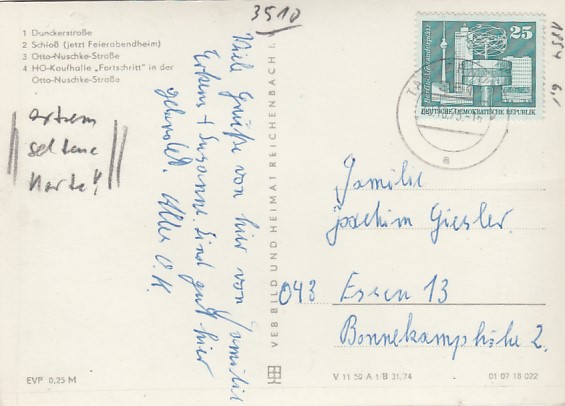 3510
1 Dunckerstraße
2 Schloß (jetzt Feierabendheim)
3 Otto-Nuschke-Straße
4 HO-Kaufhalle „Fortschritt" in der
Otto-Nuschke-Straße
extrem
seltene
Karte!
Viele Grüße von hier von Familie
Erken + Susanne. Sind gut hier
gelandet. Alles O.K.
VEB BILD UND HEIMAT REICHENBACH I.
25
DEUTSCHE DEMOKRATISCHE REPUBLIK
a
Familie
Joachim Giesler
043 Essen 13
Bonnekamphöhe 2.
EVP 0,25 M
V 11 50 A 1/B 31/74
01 07 18 022